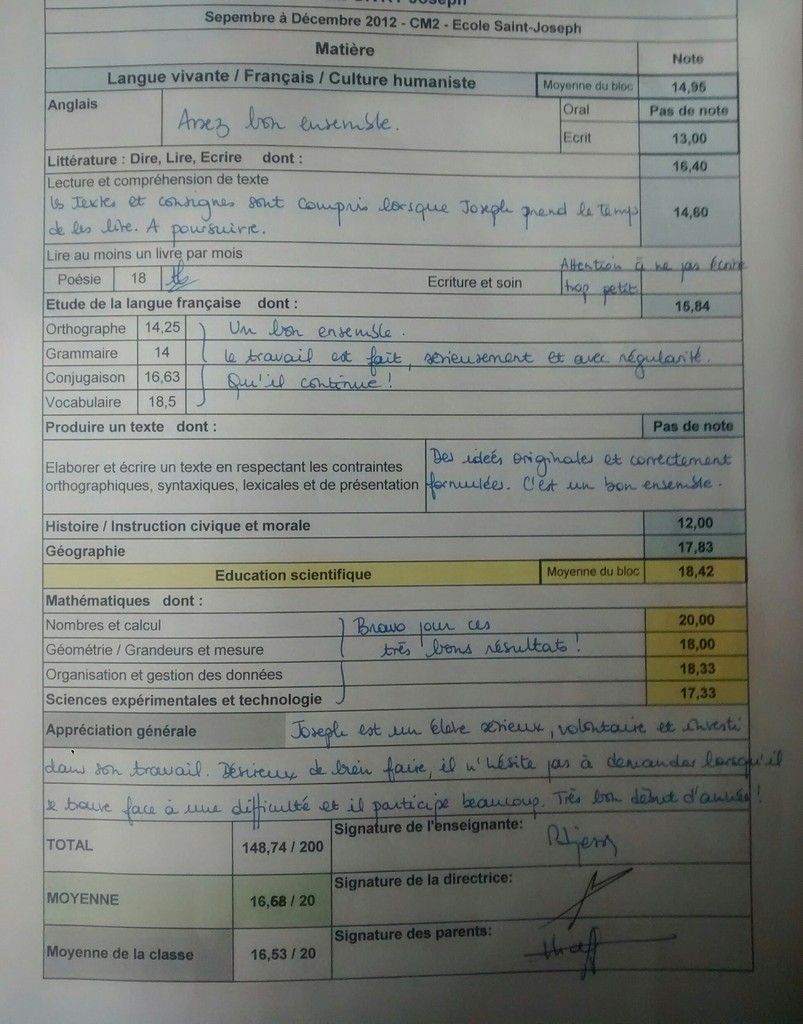 Joseph
Sepembre à Décembre 2012 - CM2 - Ecole Saint-Joseph
Matière Note
Langue vivante / Français / Culture humaniste Moyenne du bloc 14,95
Anglais Assez bon ensemble. Oral Pas de note
Ecrit 13,00
Littérature : Dire, Lire, Ecrire dont : 16,40
Lecture et compréhension de texte
Les textes et consignes sont compris lorsque Joseph prend le temps 14,80
de les lire. A poursuivre.
Lire au moins un livre par mois
Poésie 18 tb Ecriture et soin Attention à ne pas écrire
trop petit
Etude de la langue française dont : 15,84
Orthographe 14,25 Un bon ensemble.
Grammaire 14 Le travail est fait, sérieusement et avec régularité.
Conjugaison 16,63 Qu'il continue !
Vocabulaire 18,5
Produire un texte dont : Pas de note
Elaborer et écrire un texte en respectant les contraintes
orthographiques, syntaxiques, lexicales et de présentation
Des idées originales et correctement
formulées. C'est un bon ensemble.
Histoire / Instruction civique et morale 12,00
Géographie 17,83
Education scientifique Moyenne du bloc 18,42
Mathématiques dont :
Nombres et calcul Bravo pour ces 20,00
Géométrie / Grandeurs et mesure très bons résultats ! 18,00
Organisation et gestion des données 18,33
Sciences expérimentales et technologie 17,33
Appréciation générale Joseph est un élève sérieux, volontaire et investi
dans son travail. Désireux de bien faire, il n'hésite pas à demander lorsqu'il
se trouve face à une difficulté et il participe beaucoup. Très bon début d'année !
TOTAL 148,74 / 200 Signature de l'enseignante:
MOYENNE 16,68 / 20 Signature de la directrice:
Moyenne de la classe 16,53 / 20 Signature des parents: